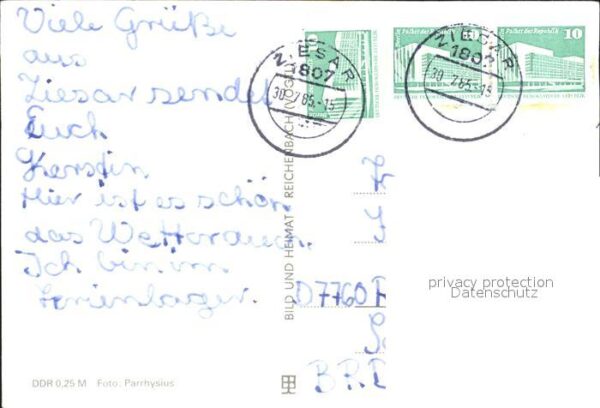 Viele Grüße
aus
Ziesar sendet
Euch
Kerstin
Hier ist es schön
das Wetter auch.
Ich bin im
Ferienlager.
DDR 0,25 M Foto: Parrhysius
BILD UND HEIMAT · REICHENBACH (VOGTL)
ZIESAR
1807
30.-7.85.-15
ZIESAR
1807
30.-7.85.-15
Palast der Republik
10
10
D7760
privacy protection
Datenschutz